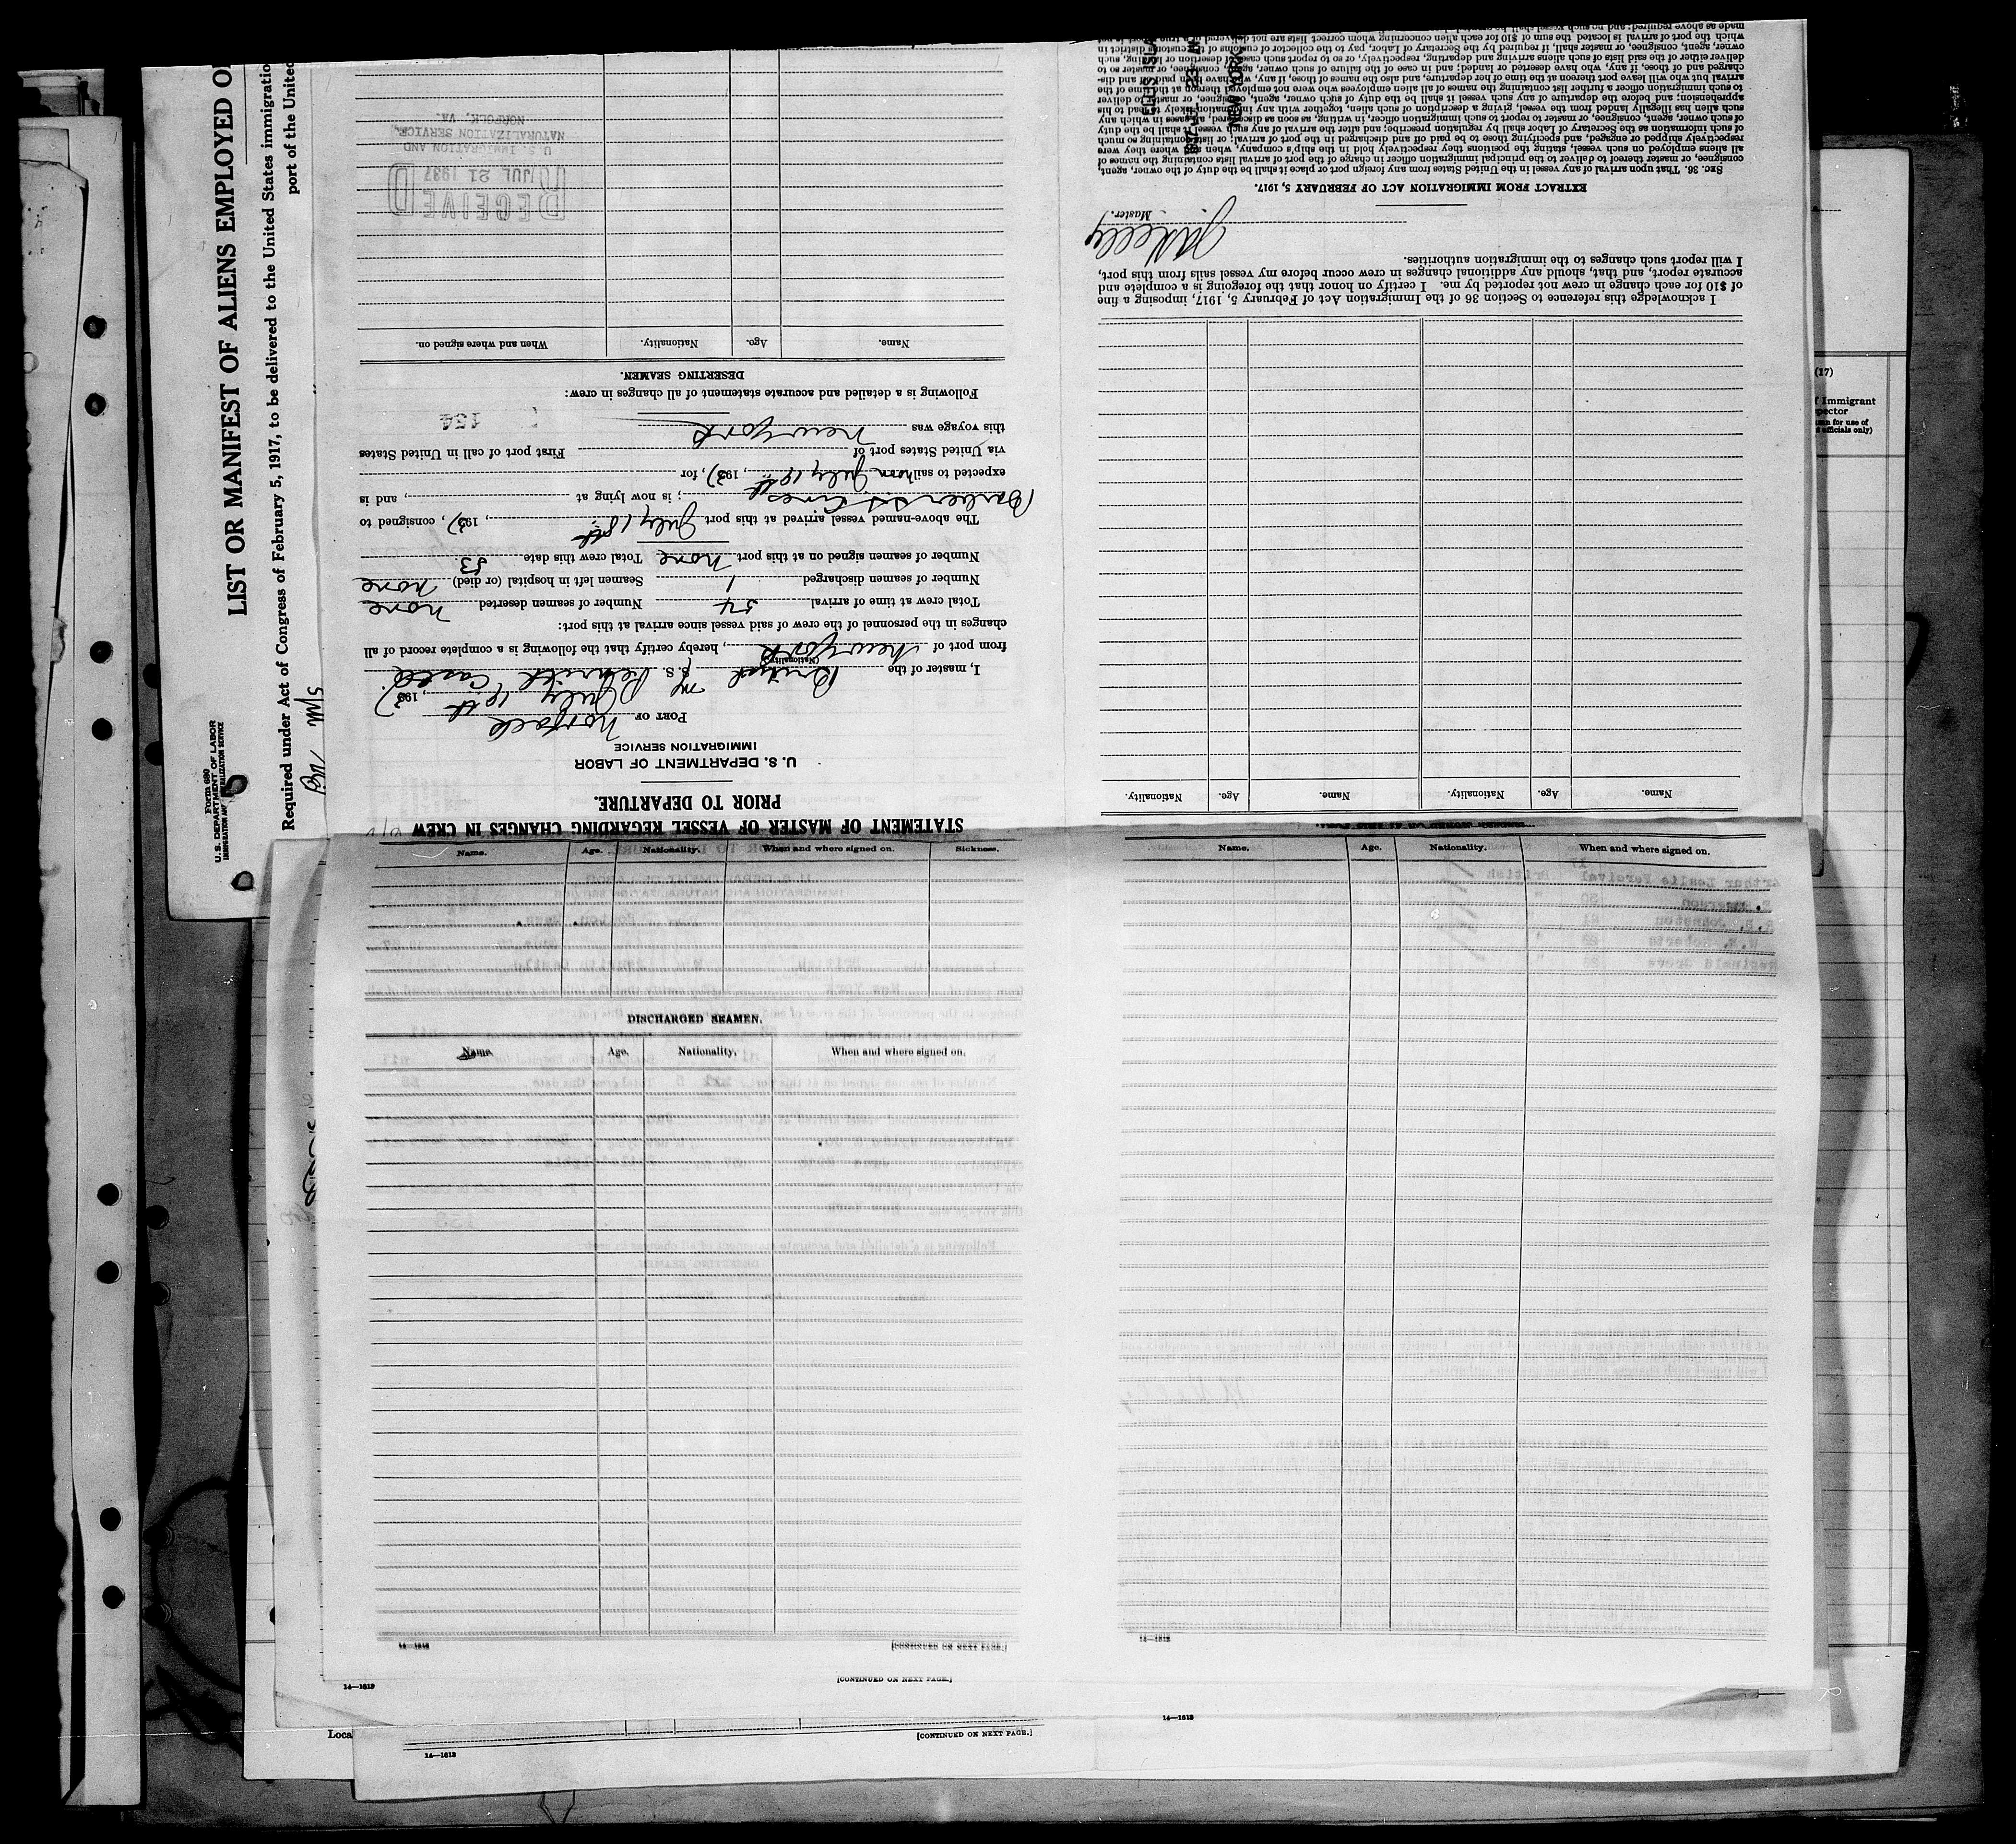 LIST OR MANIFEST OF ALIENS EMPLOYED O
Required under Act of Congress of February 5, 1917, to be delivered to the United States immigratio
port of the United
Form 680
U. S. DEPARTMENT OF LABOR
IMMIGRATION AND NATURALIZATION SERVICE
STATEMENT OF MASTER OF VESSEL REGARDING CHANGES IN CREW
PRIOR TO DEPARTURE.
U. S. DEPARTMENT OF LABOR
IMMIGRATION SERVICE
PORT OF Norfolk
July 19th, 1937
I, master of the British M S. Penrith Castle
(Nationality)
from port of New York, hereby certify that the following is a complete record of all
changes in the personnel of the crew of said vessel since arrival at this port:
Total crew at time of arrival 54 Number of seamen deserted none
Number of seamen discharged 1 Seamen left in hospital (or died) none
Number of seamen signed on at this port none Total crew this date 53
The above-named vessel arrived at this port July 18th, 1937, consigned to
Barber SS Lines; is now lying at , and is
expected to sail from July 19th, 1937, for
via United States port of First port of call in United States
this voyage was New York
154
Following is a detailed and accurate statement of all changes in crew:
DESERTING SEAMEN.
Name. Age. Nationality. When and where signed on.
RECEIVED
JUL 21 1937
U. S. IMMIGRATION AND
NATURALIZATION SERVICE,
NORFOLK, VA.
Name. Age. Nationality. Name. Age. Nationality.
I acknowledge this reference to Section 36 of the Immigration Act of February 5, 1917, imposing a fine
of $10 for each change in crew not reported by me. I certify on honor that the foregoing is a complete and
accurate report, and that, should any additional changes in crew occur before my vessel sails from this port,
I will report such changes to the immigration authorities.
Master.
EXTRACT FROM IMMIGRATION ACT OF FEBRUARY 5, 1917.
SEC. 36. That upon arrival of any vessel in the United States from any foreign port or place it shall be the duty of the owner, agent,
consignee, or master thereof to deliver to the principal immigration officer in charge of the port of arrival lists containing the names of
all aliens employed on such vessel, stating the positions they respectively hold in the ship's company, when and where they were
respectively shipped or engaged, and specifying those to be paid off and discharged in the port of arrival; or lists containing so much
of such information as the Secretary of Labor shall by regulation prescribe; and after the arrival of any such vessel it shall be the duty
of such owner, agent, consignee, or master to report to such immigration officer, in writing, as soon as discovered, all cases in which any
such alien has illegally landed from the vessel, giving a description of such alien, together with any information likely to lead to his
apprehension; and before the departure of any such vessel it shall be the duty of such owner, agent, consignee, or master to deliver
to such immigration officer a further list containing the names of all alien employees who were not employed thereon at the time of the
arrival but who will leave port thereon at the time of her departure, and also the names of those, if any, who have been paid off and dis-
charged and of those, if any, who have deserted or landed; and in case of the failure of such owner, agent, consignee, or master so to
deliver either of the said lists of such aliens arriving and departing, respectively, or so to report such cases of desertion or landing, such
owner, agent, consignee, or master shall, if required by the Secretary of Labor, pay to the collector of customs of the customs district in
which the port of arrival is located the sum of $10 for each alien concerning whom correct lists are not delivered or a true report is not
(17)
f Immigrant
pector
officials only)
Name. Age. Nationality. When and where signed on. Sickness.
DISCHARGED SEAMEN.
Name. Age. Nationality. When and where signed on.
14—1612 [CONTINUED ON NEXT PAGE.]
Name. Age. Nationality. When and where signed on.
14—1612
14—1612 [CONTINUED ON NEXT PAGE.]
14—1612
Loca
14—1612 [CONTINUED ON NEXT PAGE.]